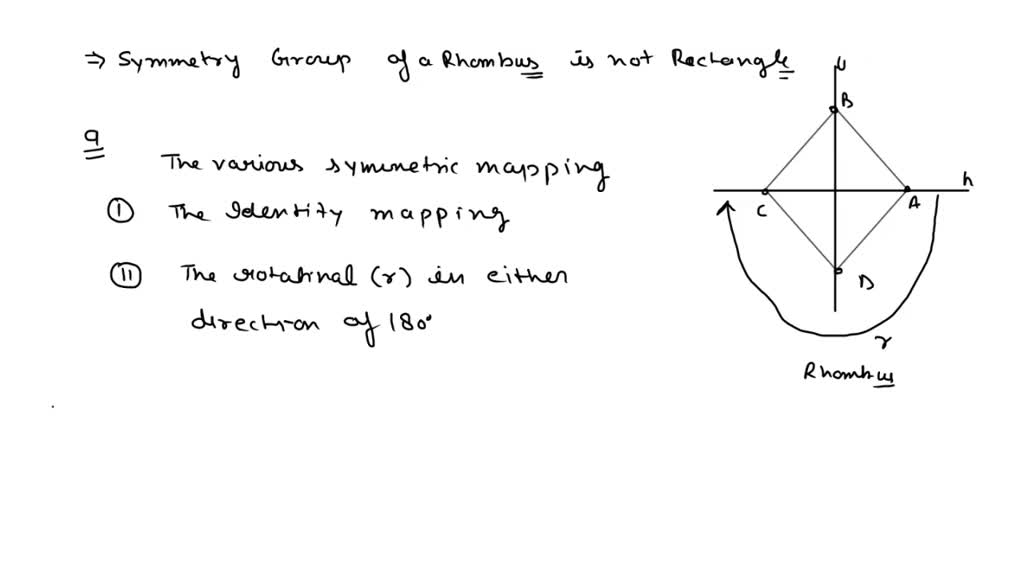 ⇒ Symmetry Group of a Rhombus is not Rectangle
q
The various symmetric mapping
I The Identity mapping
II The rotatinal (r) in either
direction of 180°
B
h
C
A
D
r
Rhombus